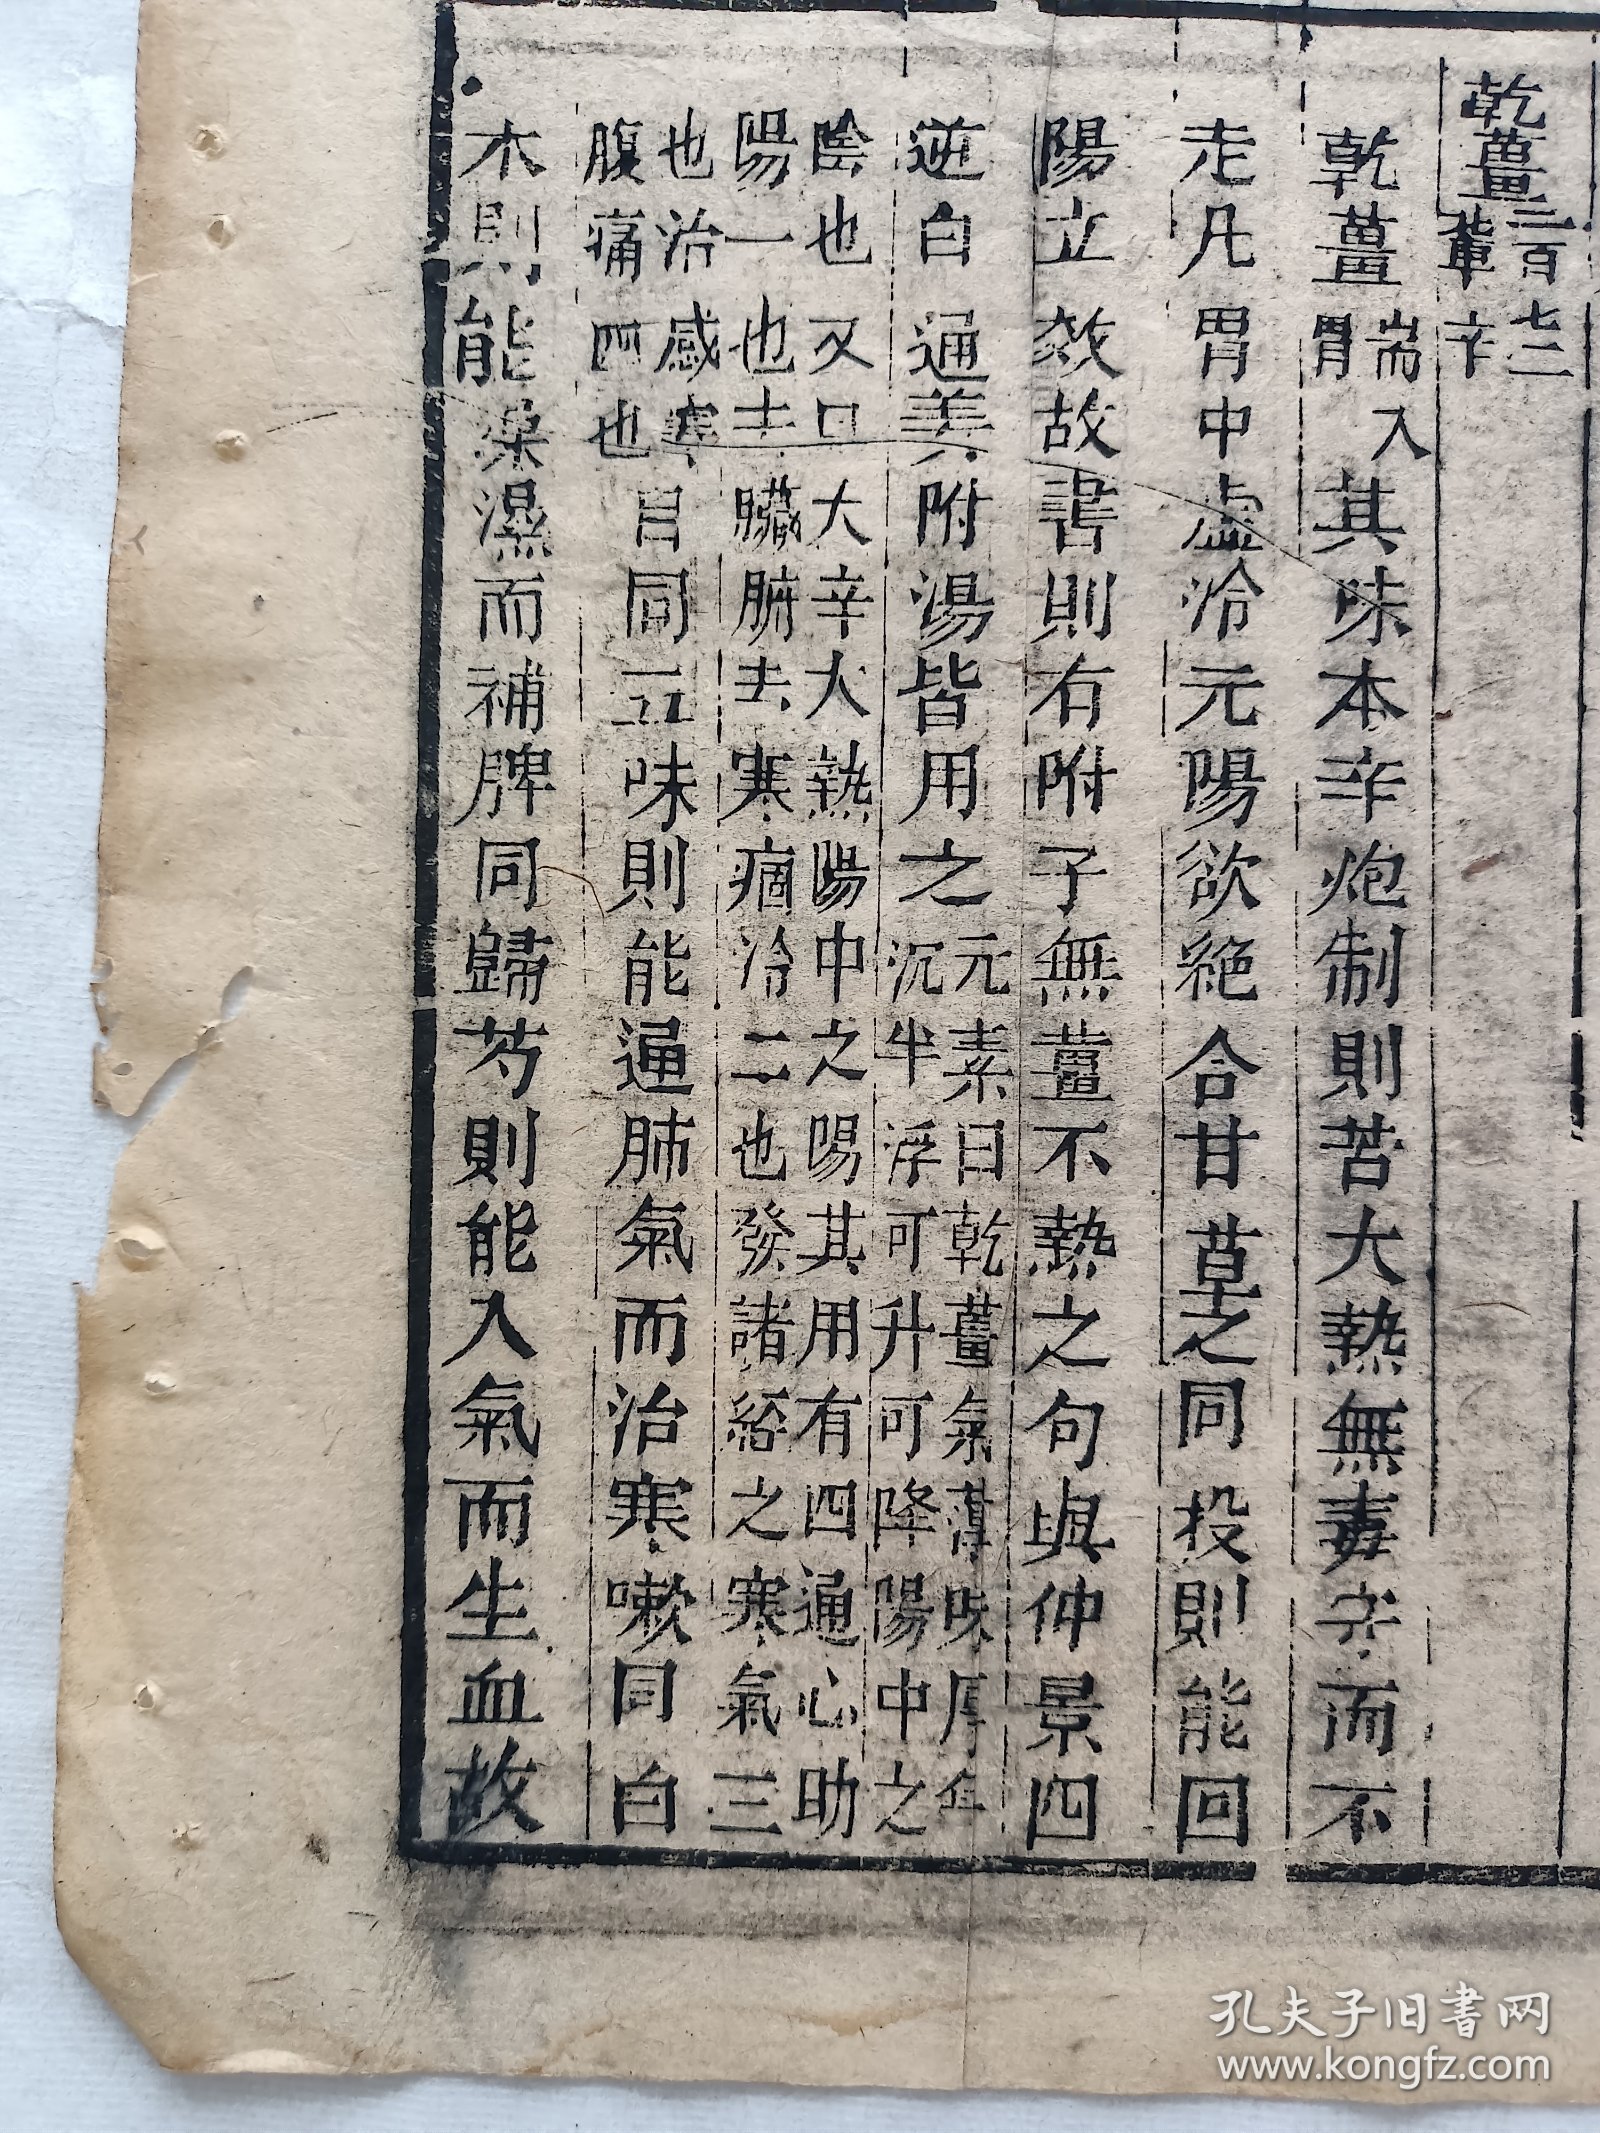 乾薑二百七二葷辛
乾薑耑入胃其味本辛炮制則苦大熱無毒守而不
走凡胃中虛冷元陽欲絕合甘草之同投則能回
陽立效故書則有附子無薑不熱之句與仲景四
逆白通姜附湯皆用之元素曰乾薑氣薄味厚半沉半浮可升可降陽中之
陰也又曰大辛大熱陽中之陽其用有四通心助陽一也去臟腑去寒痼冷二也發諸經之寒氣三
也治感寒腹痛四也且同五味則能通肺氣而治寒嗽同白
木則能燥濕而補脾同歸芍則能入氣而生血故
孔夫子旧书网
www.kongfz.com